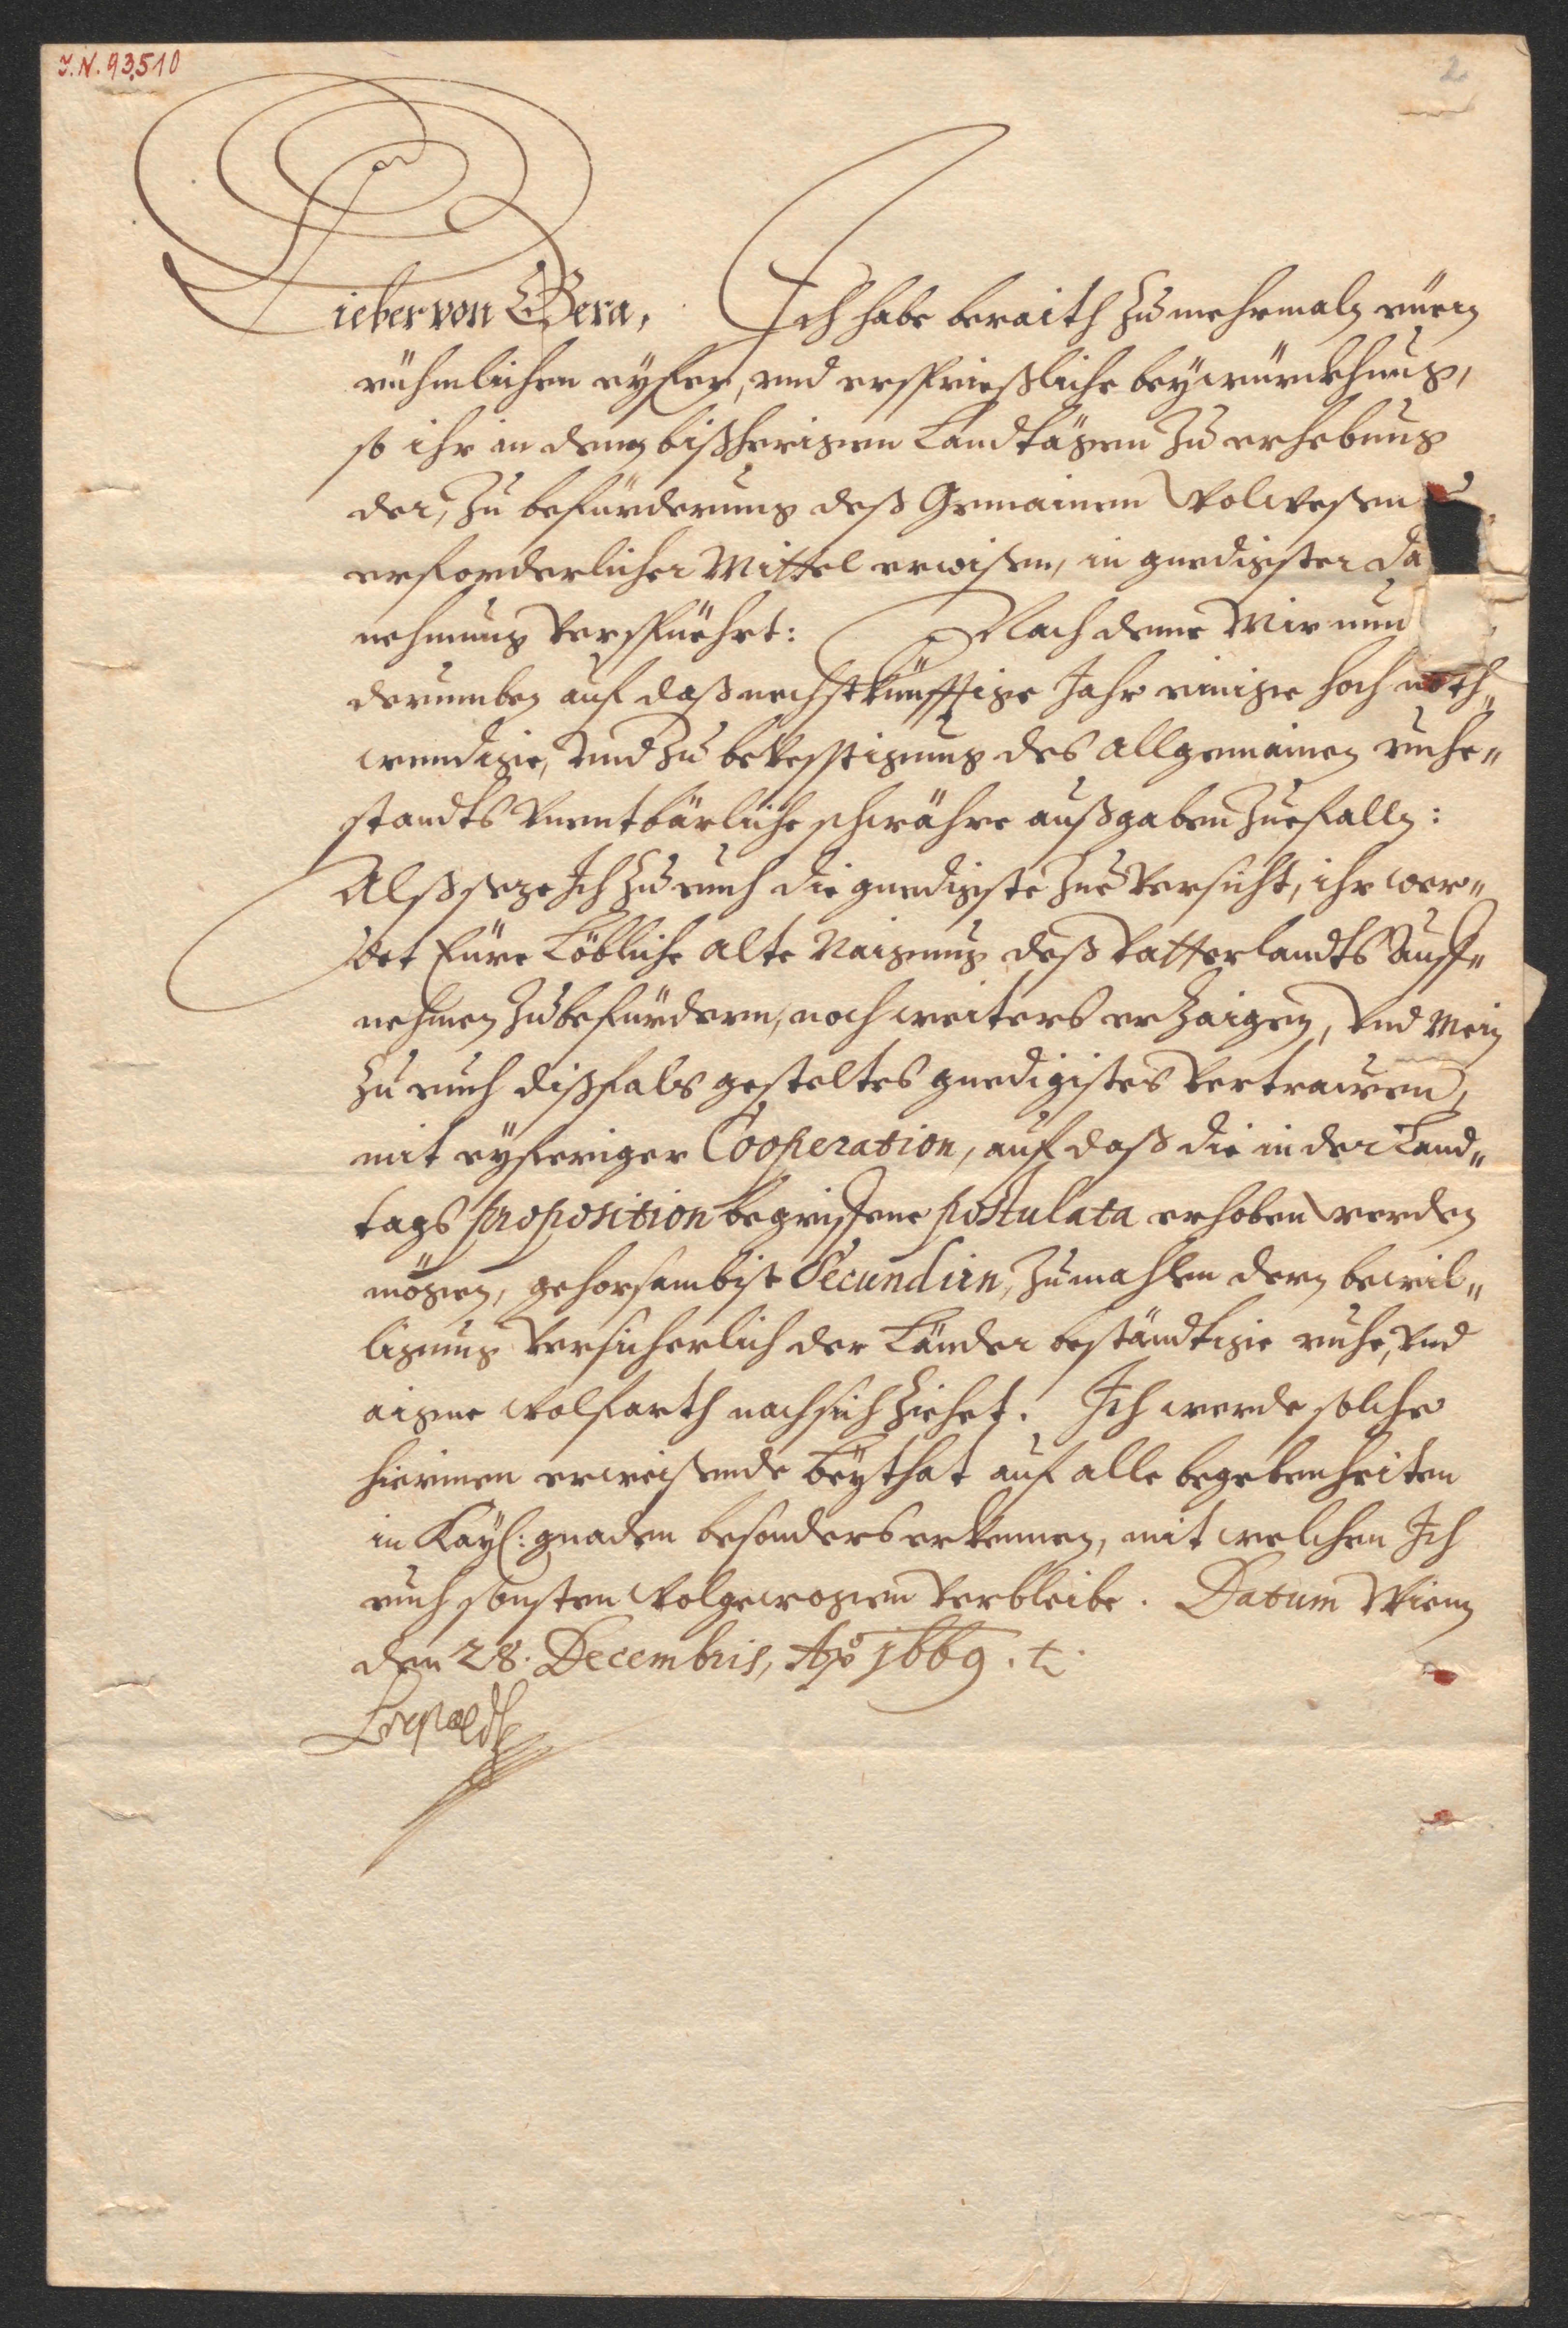 J.N. 93510
2
Lieber von Gera, Ich habe beraith zu mehrmaln euern
rühmlichen eyfer, und ersprießliche beywürckhung,
so ihr in denen bißherigen Landtägen zu erhebung
der, zu befürderung deß Gemainen Wolwesens
erforderlicher Mittel erwisen, in gnedigister da
nehmung verspüehrt: Nach deme Mir nun
derumben auf daß nechstkünfftige Jahr einige hoch noth„
wendige, und zu bevesstigung des allgemainen ruhe„
standts unentbärliche schwähre außgaben zuefallen:
Alß seze Ich zu euch die gnedigiste zueversicht, ihr wer„
det Eure Löbliche alte Naigung deß Vatterlandts Auff„
nehmen zubefürdern, noch weiters erzaigen, und Mein
zu euch dißfals gesteltes gnedigistes vertrawen,
mit eyferiger Cooperation, auf daß die in der Land„
tags proposition begriffene postulata erhoben werden
mögen, gehorsambist Secundirn, zumahlen dern bewil„
ligung versicherlich der Länder beständtige ruhe, und
aigne wolfarth nach sich ziehet. Ich werde solche
hierinen erweisende beythat auf alle begebenheiten
in Kayl: gnaden besonders erkennen, mit welchen Ich
euch sonsten wolgewogen verbleibe. Datum Wienn
den 28. Decembris, Aº 1669.
Leopoldt